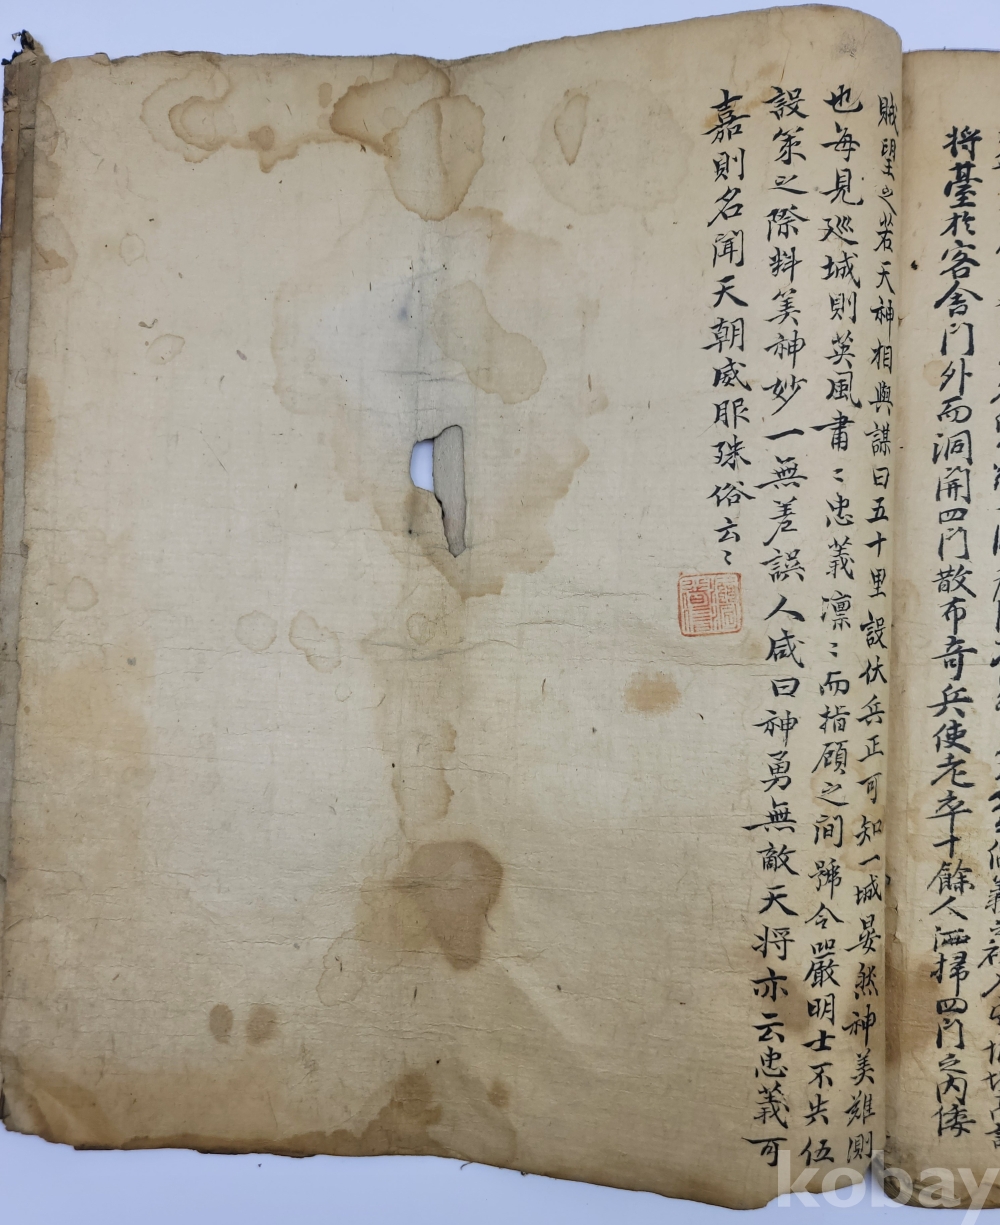 将臺於客舍門外而洞開四門散布奇兵使老卒十餘人洒掃四門之內倭
賊望之若天神相與謀曰五十里設伏兵正可知一城晏然神美難測
也每見廵城則英風肅〻忠義凛〻而指顧之間號令嚴明士不失伍
設策之際料筭神妙一無差誤人咸曰神勇無敵天将亦云忠義可
嘉則名聞天朝威服殊俗云〻
kobay